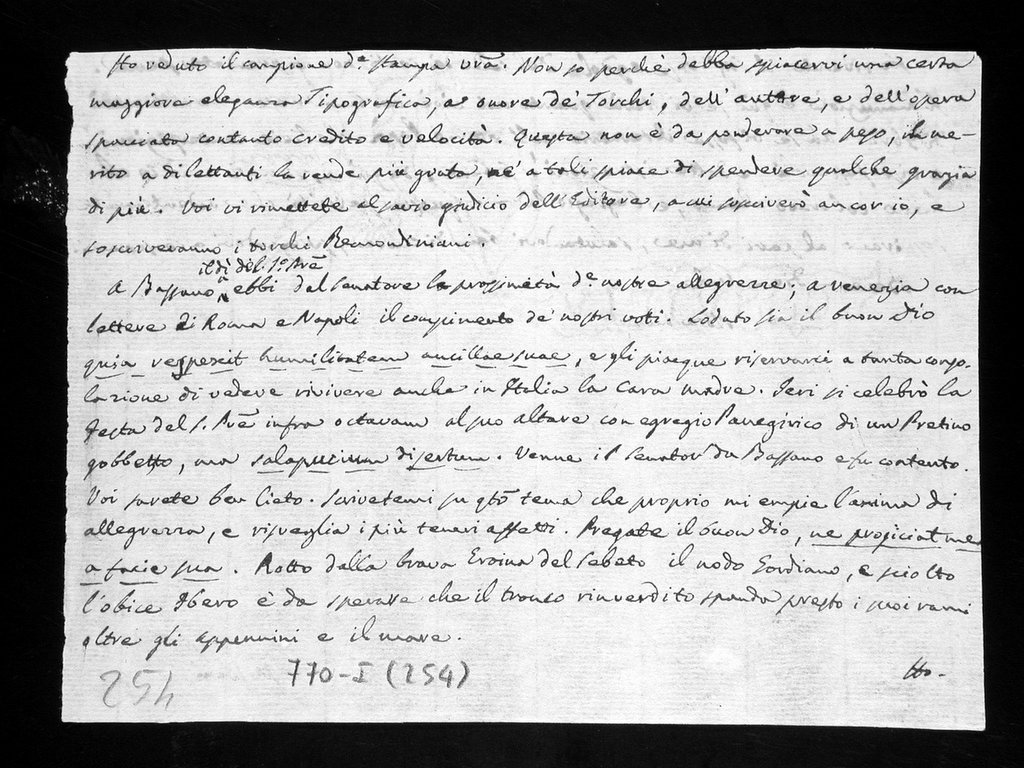 Ho veduto il campione da stampa vrã. Non so perchè debba spiacervi una certa
maggiore eleganza Tipografica, a onore de' Torchi, dell'autore, e dell'opera
spacciata contanto credito e velocità. Questa non è da ponderare a peso, il me-
rito a dilettanti la rende più grata, nè a tali spiace di spendere qualche grazia
di più. Voi vi rimettete al savio giudicio dell'Editore, a cui soscriverò ancor io, e
soscriveranno i torchi Remondiniani.
il dì del S. Prẽ
A Bassano ebbi dal Senatore la prossimità de nostre allegrezze; a Venezia con
lettere di Roma e Napoli il compimento de' nostri voti. Lodato sia il buon Dio
quia respexit humilitatem ancillae suae, e gli piacque riservarci a tanta conso-
lazione di vedere rivivere anche in Italia la cara madre. Ieri si celebrò la
Festa del S. Prẽ infra octavam al suo altare con egregio Panegirico di un Pretino
gobbetto, ma salapucium disertum. Venne il Senator da Bassano e fu contento.
Voi sarete ben lieto. Scrivetemi su qto tema che proprio mi empie l'anima di
allegrezza, e risveglia i più teneri affetti. Pregate il buon Dio, ne projiciat me
a facie sua. Rotto dalla brava Eroina del Sebeto il nodo Gordiano, e sciolto
l'obice Ibero è da sperare che il tronco rinverdito spanda presto i suoi rami
oltre gli Appennini e il mare.
Ho.
770-I (254)
254